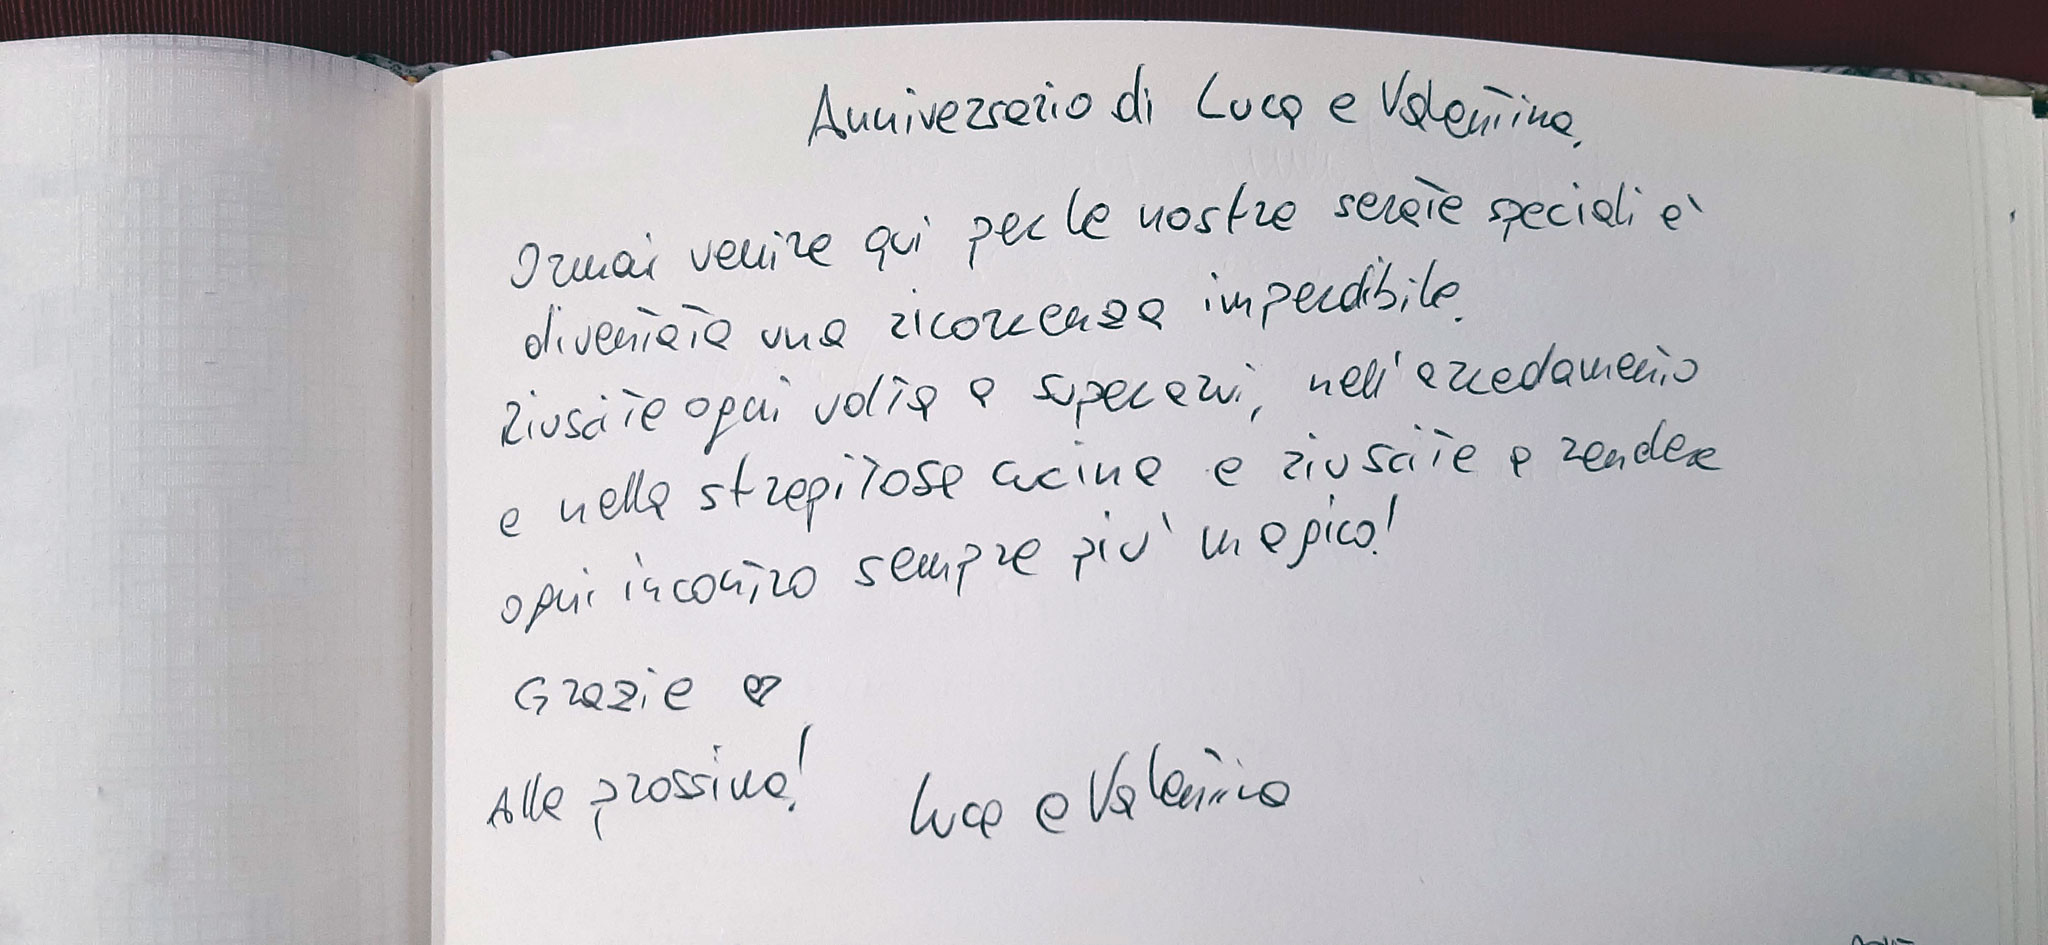 Anniversario di Luca e Valentina.
Ormai venire qui per le nostre serate speciali e'
diventata una ricorrenza imperdibile.
Riuscite ogni volta a superarvi, nell'arredamento
e nella strepitosa cucina e riuscite a rendere
ogni incontro sempre piu' magico!
Grazie ♡
Alla prossima!
Luca e Valentina